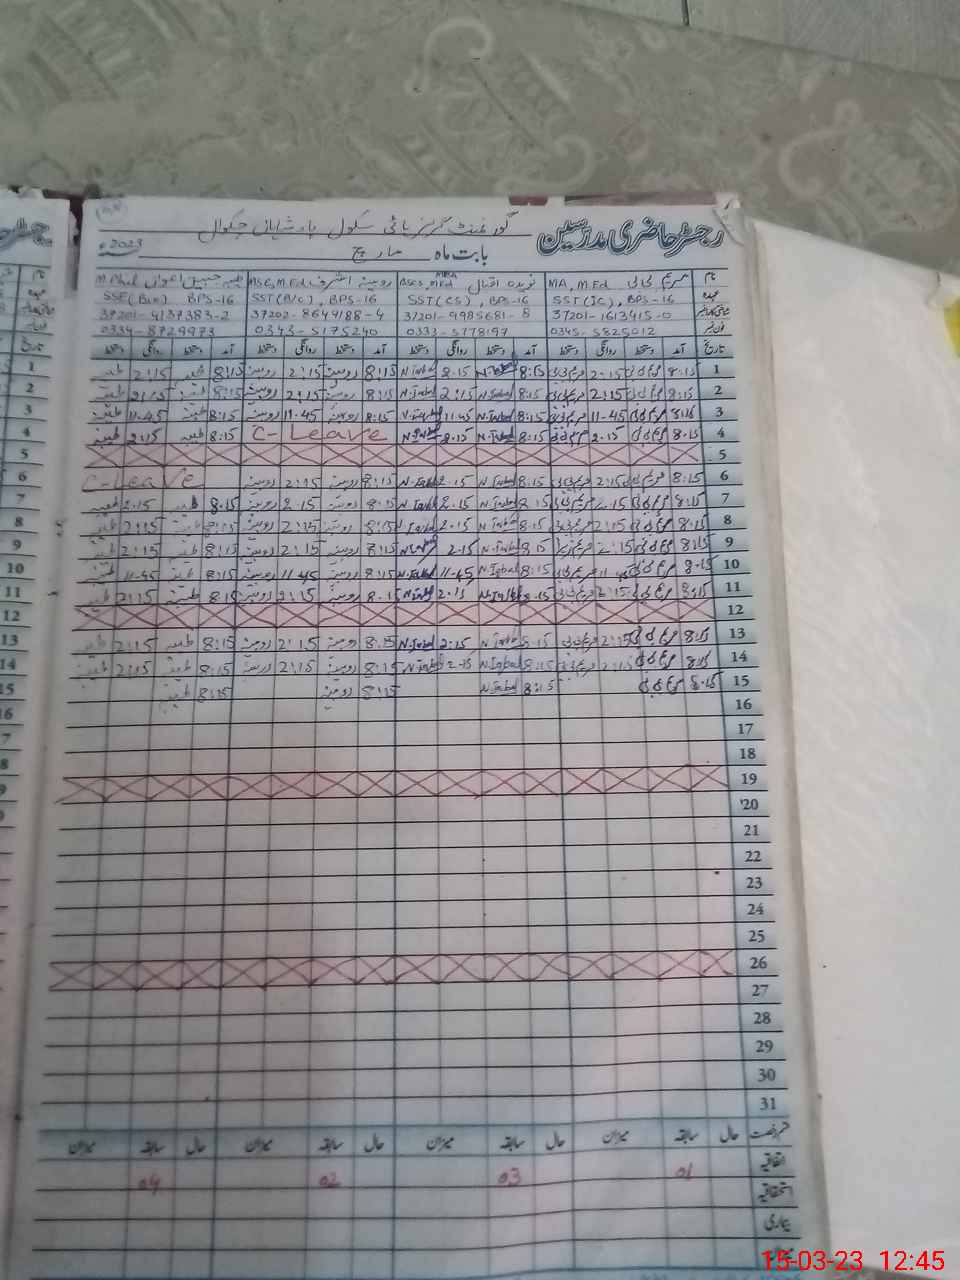 رجسٹر حاضری مدرسین گورنمنٹ گرلز ہائی سکول بادشاہاں چکوال
بابت ماہ مارچ 2023ء
نام مریم بی بی MA, M.Ed نویدہ اقبال MBA BSCS, M.Ed روبینہ اشرف MSC, M.Ed طیبہ حبیب اعوان M.Phil
عہدہ SST(IC), BPS-16 SST(CS), BPS-16 SST(B/C), BPS-16 SSE(Bio) BPS-16
شناختی کارڈ نمبر 37201-1613415-0 37201-9985681-8 37202-8649188-4 37201-4137383-2
فون نمبر 0345-5825012 0333-5778197 0343-5175240 0334-8729973
تاریخ آمد دستخط روانگی دستخط آمد دستخط روانگی دستخط آمد دستخط روانگی دستخط آمد دستخط روانگی دستخط
1 8:15 مریم بی بی 2:15 مریم بی بی 8:15 N.Iqbal 2:15 N.Iqbal 8:15 روبینہ 2:15 روبینہ 8:15 طیبہ 2:15 طیبہ
2 8:15 مریم بی بی 2:15 مریم بی بی 8:15 N.Iqbal 2:15 N.Iqbal 8:15 روبینہ 2:15 روبینہ 8:15 طیبہ 2:15 طیبہ
3 8:15 مریم بی بی 11-45 مریم بی بی 8:15 N.Iqbal 11-45 N.Iqbal 8:15 روبینہ 11-45 روبینہ 8:15 طیبہ 11-45 طیبہ
4 8:15 مریم بی بی 2:15 مریم بی بی 8:15 N.Iqbal 2:15 N.Iqbal C-Leave 8:15 طیبہ 2:15 طیبہ
5
6 8:15 مریم بی بی 2:15 مریم بی بی 8:15 N.Iqbal 2.15 N.Iqbal 8:15 روبینہ 2:15 روبینہ C-Leave
7 8:15 مریم بی بی 2.15 مریم بی بی 8:15 N.Iqbal 2.15 N.Iqbal 8:15 روبینہ 2.15 روبینہ 8:15 طیبہ 2.15 طیبہ
8 8:15 مریم بی بی 2:15 مریم بی بی 8:15 N.Iqbal 2.15 N.Iqbal 8:15 روبینہ 2:15 روبینہ 8:15 طیبہ 2:15 طیبہ
9 8:15 مریم بی بی 2:15 8:15 N.Iqbal 2.15 N.Iqbal 8:15 روبینہ 2:15 روبینہ 8:15 طیبہ 2:15 طیبہ
10 8.15 مریم بی بی 11-45 مریم بی بی 8:15 N.Iqbal 11-45 N.Iqbal 8:15 روبینہ 11-45 روبینہ 8:15 طیبہ 11-45 طیبہ
11 8:15 مریم بی بی 2:15 مریم بی بی 8.15 N.Iqbal 2.15 N.Iqbal 8.15 روبینہ 2:15 روبینہ 8:15 طیبہ 2:15 طیبہ
12
13 8:15 مریم بی بی 2:15 مریم بی بی 8:15 N.Iqbal 2:15 N.Iqbal 8:15 روبینہ 2:15 روبینہ 8:15 طیبہ 2:15 طیبہ
14 8:15 مریم بی بی 2:15 مریم بی بی 8:15 N.Iqbal 2.15 N.Iqbal 8:15 روبینہ 2:15 روبینہ 8:15 طیبہ 2:15 طیبہ
15 8:15 مریم بی بی 8:15 N.Iqbal 8:15 روبینہ 8:15 طیبہ
16
17
18
19
20
21
22
23
24
25
26
27
28
29
30
31
قسم رخصت حال سابقہ میزان حال سابقہ میزان حال سابقہ میزان حال سابقہ میزان
اتفاقیہ 01 03 02 04
استحقاقیہ
بیماری
15-03-23 12:45